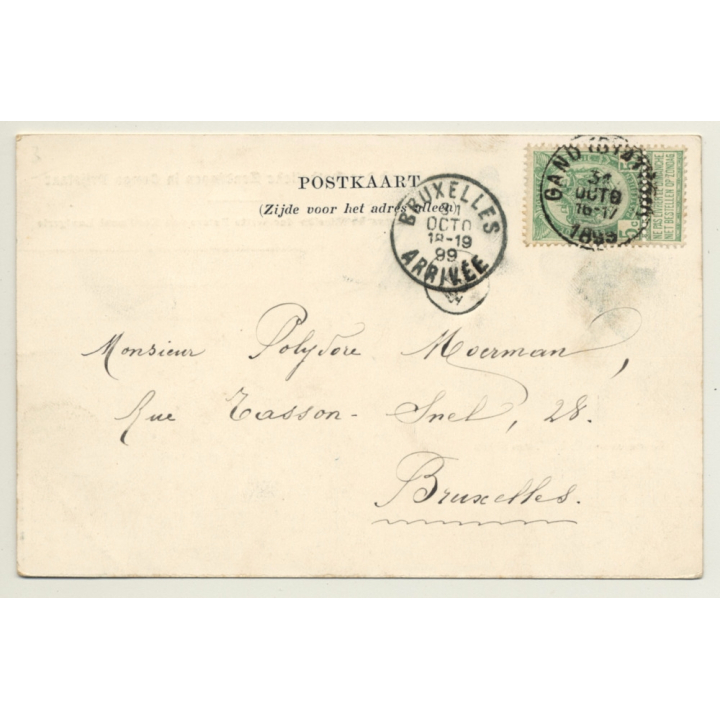 POSTKAART
(Zijde voor het adres alleen)
BRUXELLES
31
OCTO
18-19
99
ARRIVÉE
GAND (STATION)
31
OCTO
16-17
1899
NE PAS LIVRER LE DIMANCHE
NIET BESTELLEN OP ZONDAG
Monsieur Polydore Moerman,
Rue Tasson-Snel, 28.
Bruxelles.